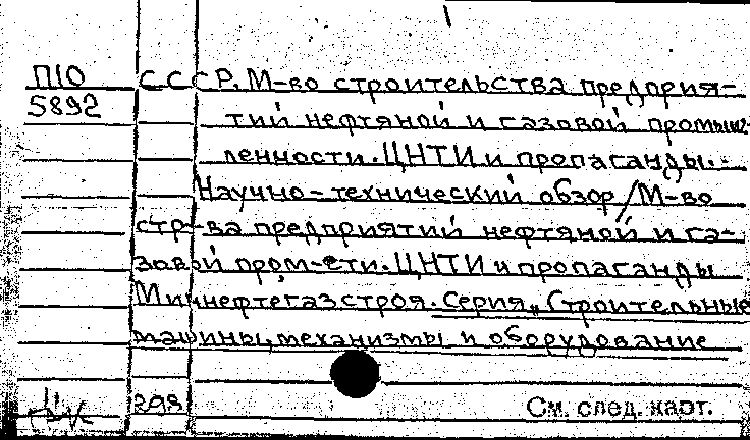 П10 СССР. М-во строительства предприя-
5892 тий нефтяной и газовой промыш-
ленности. ЦНТИ и пропаганды. -
Научно-технический обзор / М-во
стр-ва предприятий нефтяной и га-
зовой пром-сти. ЦНТИ и пропаганды
Миннефтегазстроя. Серия „Строительные
машины, механизмы и оборудование
См. след. карт.